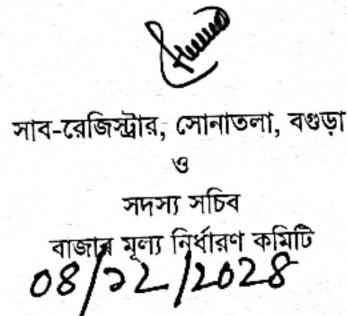 সাব-রেজিস্ট্রার, সোনাতলা, বগুড়া
ও
সদস্য সচিব
বাজার মূল্য নির্ধারণ কমিটি
০৪/১২/২০২৪